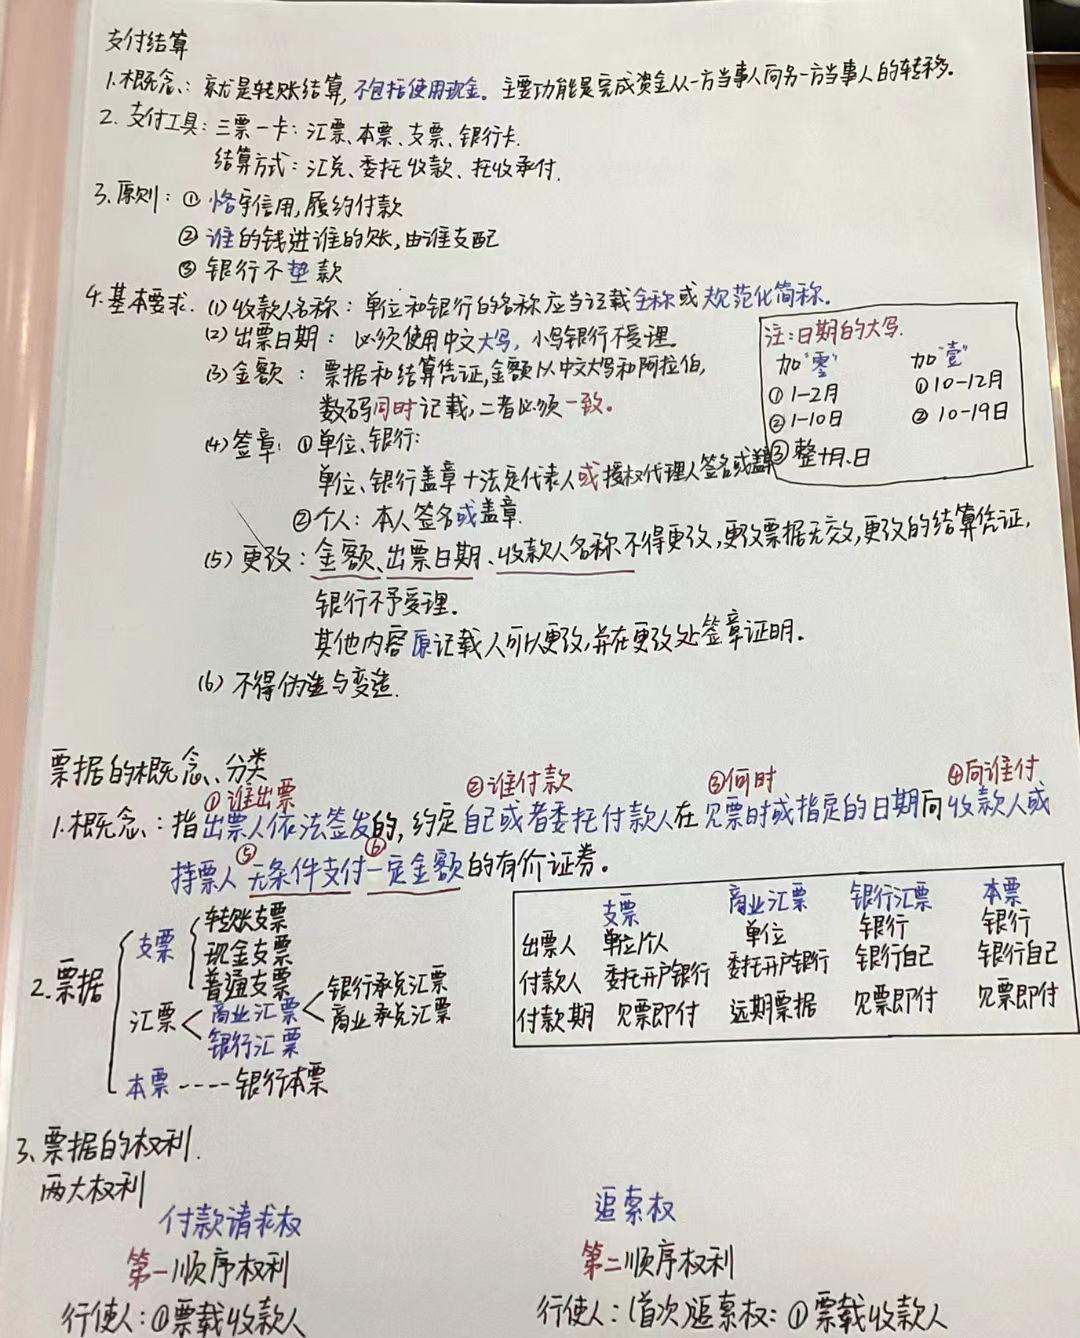 支付结算
1.概念：就是转账结算,不包括使用现金。主要功能是完成资金从一方当事人向另一方当事人的转移。
2.支付工具：三票一卡：汇票、本票、支票、银行卡.
结算方式：汇兑、委托收款、托收承付.
3.原则：①恪守信用,履约付款
②谁的钱进谁的账,由谁支配
③银行不垫款
4.基本要求.(1)收款人名称：单位和银行的名称应当记载全称或规范化简称.
(2)出票日期：必须使用中文大写,小写银行不受理.
(3)金额：票据和结算凭证,金额以中文大写和阿拉伯,
数码同时记载,二者必须一致。
注：日期的大写.
加"零" 加"壹"
①1-2月 ①10-12月
②1-10日 ②10-19日
③整十月、日
(4)签章：①单位、银行：
单位、银行盖章+法定代表人或授权代理人签名或盖章
②个人：本人签名或盖章.
(5)更改：金额、出票日期、收款人名称不得更改,更改票据无效,更改的结算凭证,
银行不予受理.
其他内容原记载人可以更改,并在更改处签章证明.
(6)不得伪造与变造.
票据的概念、分类
①谁出票 ②谁付款 ③何时 ④向谁付
1.概念：指出票人依法签发的,约定自己或者委托付款人在见票时或指定的日期向收款人或
⑤ ⑥
持票人无条件支付一定金额的有价证券。
2.票据
支票
转账支票
现金支票
普通支票
汇票
商业汇票
银行承兑汇票
商业承兑汇票
银行汇票
本票----银行本票
支票 商业汇票 银行汇票 本票
出票人 单位/个人 单位 银行 银行
付款人 委托开户银行 委托开户银行 银行自己 银行自己
付款期 见票即付 远期票据 见票即付 见票即付
3、票据的权利.
两大权利
付款请求权 追索权
第一顺序权利 第二顺序权利
行使人：①票载收款人 行使人：(首次)追索权：①票载收款人